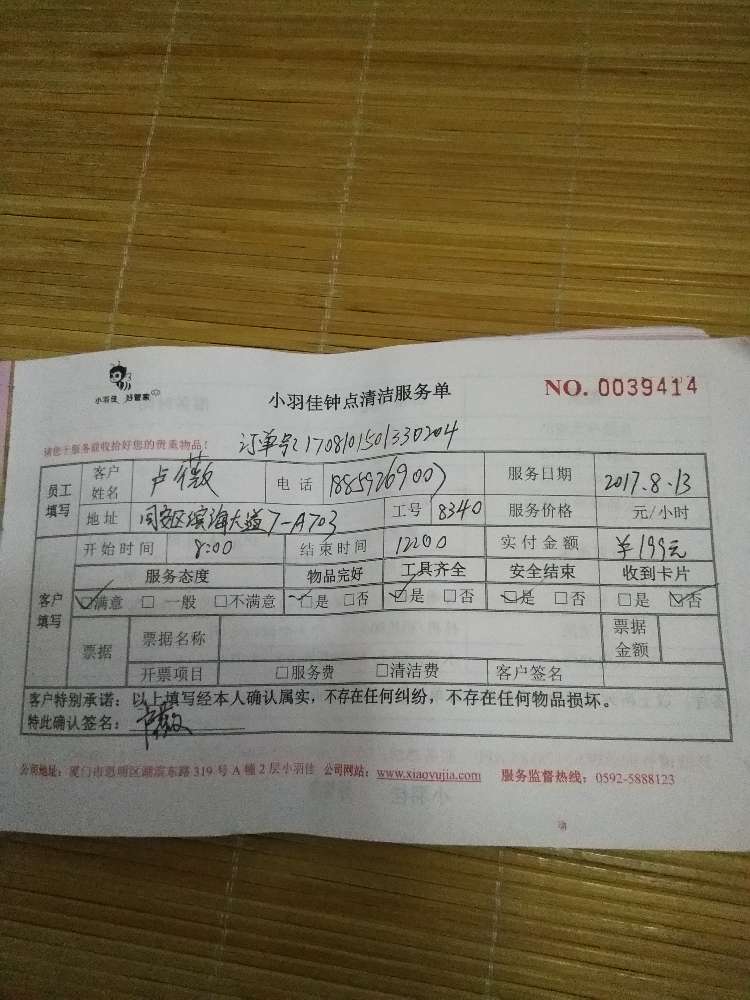 小羽佳 好管家
小羽佳钟点清洁服务单
NO. 0039414
请您于服务前收拾好您的贵重物品！
订单号：1708101501330204
员工填写 客户姓名 卢薇 电话 18859269007 服务日期 2017.8.13
地址 同安区滨海大道7-A703 工号 8340 服务价格 元/小时
客户填写 开始时间 8:00 结束时间 12:00 实付金额 ￥199元
服务态度 物品完好 工具齐全 安全结束 收到卡片
☑满意 □ 一般 □不满意 ☑是 □否 ☑是 □否 ☑是 □否 □是 ☑否
票据 票据名称 票据金额
开票项目 □服务费 □清洁费 客户签名
客户特别承诺：以上填写经本人确认属实，不存在任何纠纷，不存在任何物品损坏。
特此确认签名：卢薇
公司地址：厦门市思明区湖滨东路 319 号 A 幢 2 层小羽佳 公司网站：www.xiaoyujia.com 服务监督热线：0592-5888123